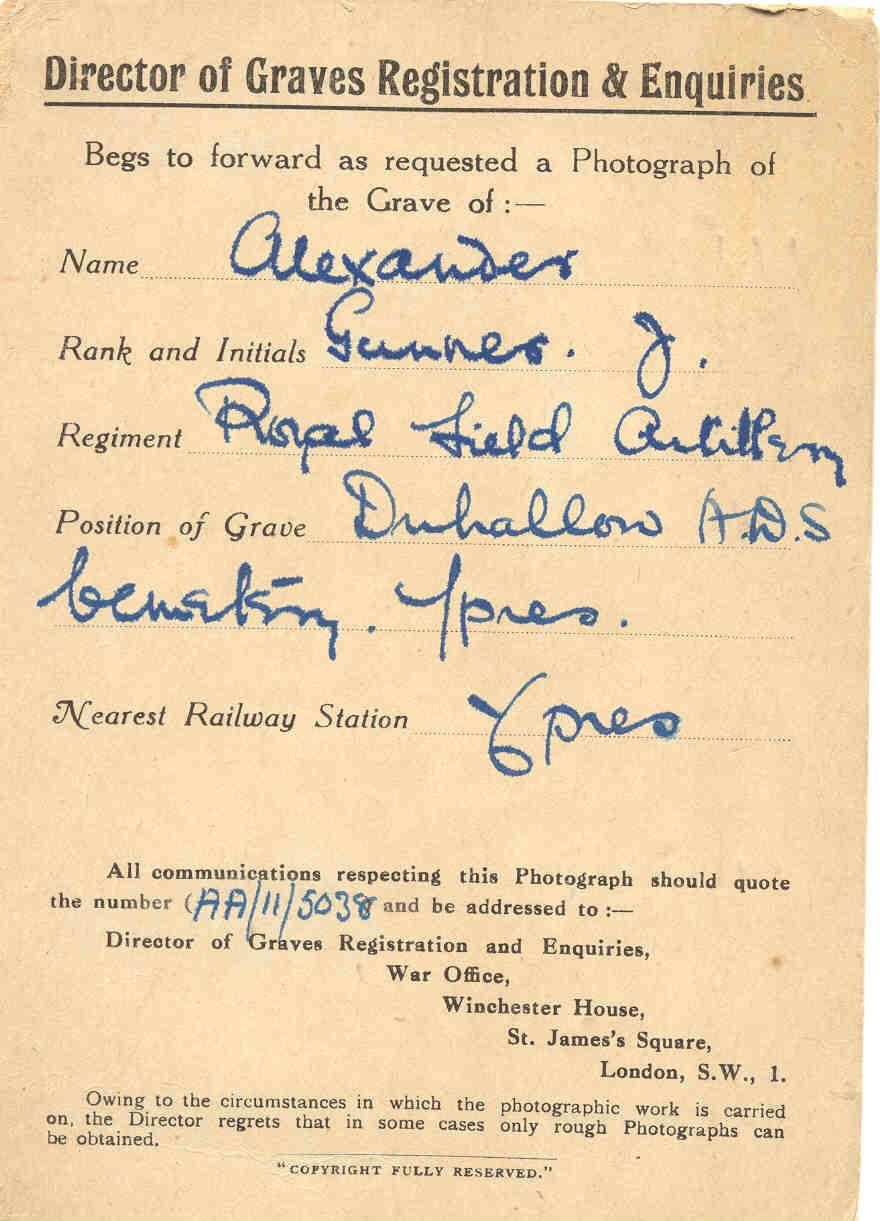 Director of Graves Registration & Enquiries
Begs to forward as requested a Photograph of
the Grave of :—
Name Alexander
Rank and Initials Gunner. J.
Regiment Royal Field Artillery
Position of Grave Duhallow A.D.S
Cemetery. Ypres.
Nearest Railway Station Ypres
All communications respecting this Photograph should quote
the number (AA/11/5038 and be addressed to :—
Director of Graves Registration and Enquiries,
War Office,
Winchester House,
St. James's Square,
London, S.W., 1.
Owing to the circumstances in which the photographic work is carried
on, the Director regrets that in some cases only rough Photographs can
be obtained.
"COPYRIGHT FULLY RESERVED."